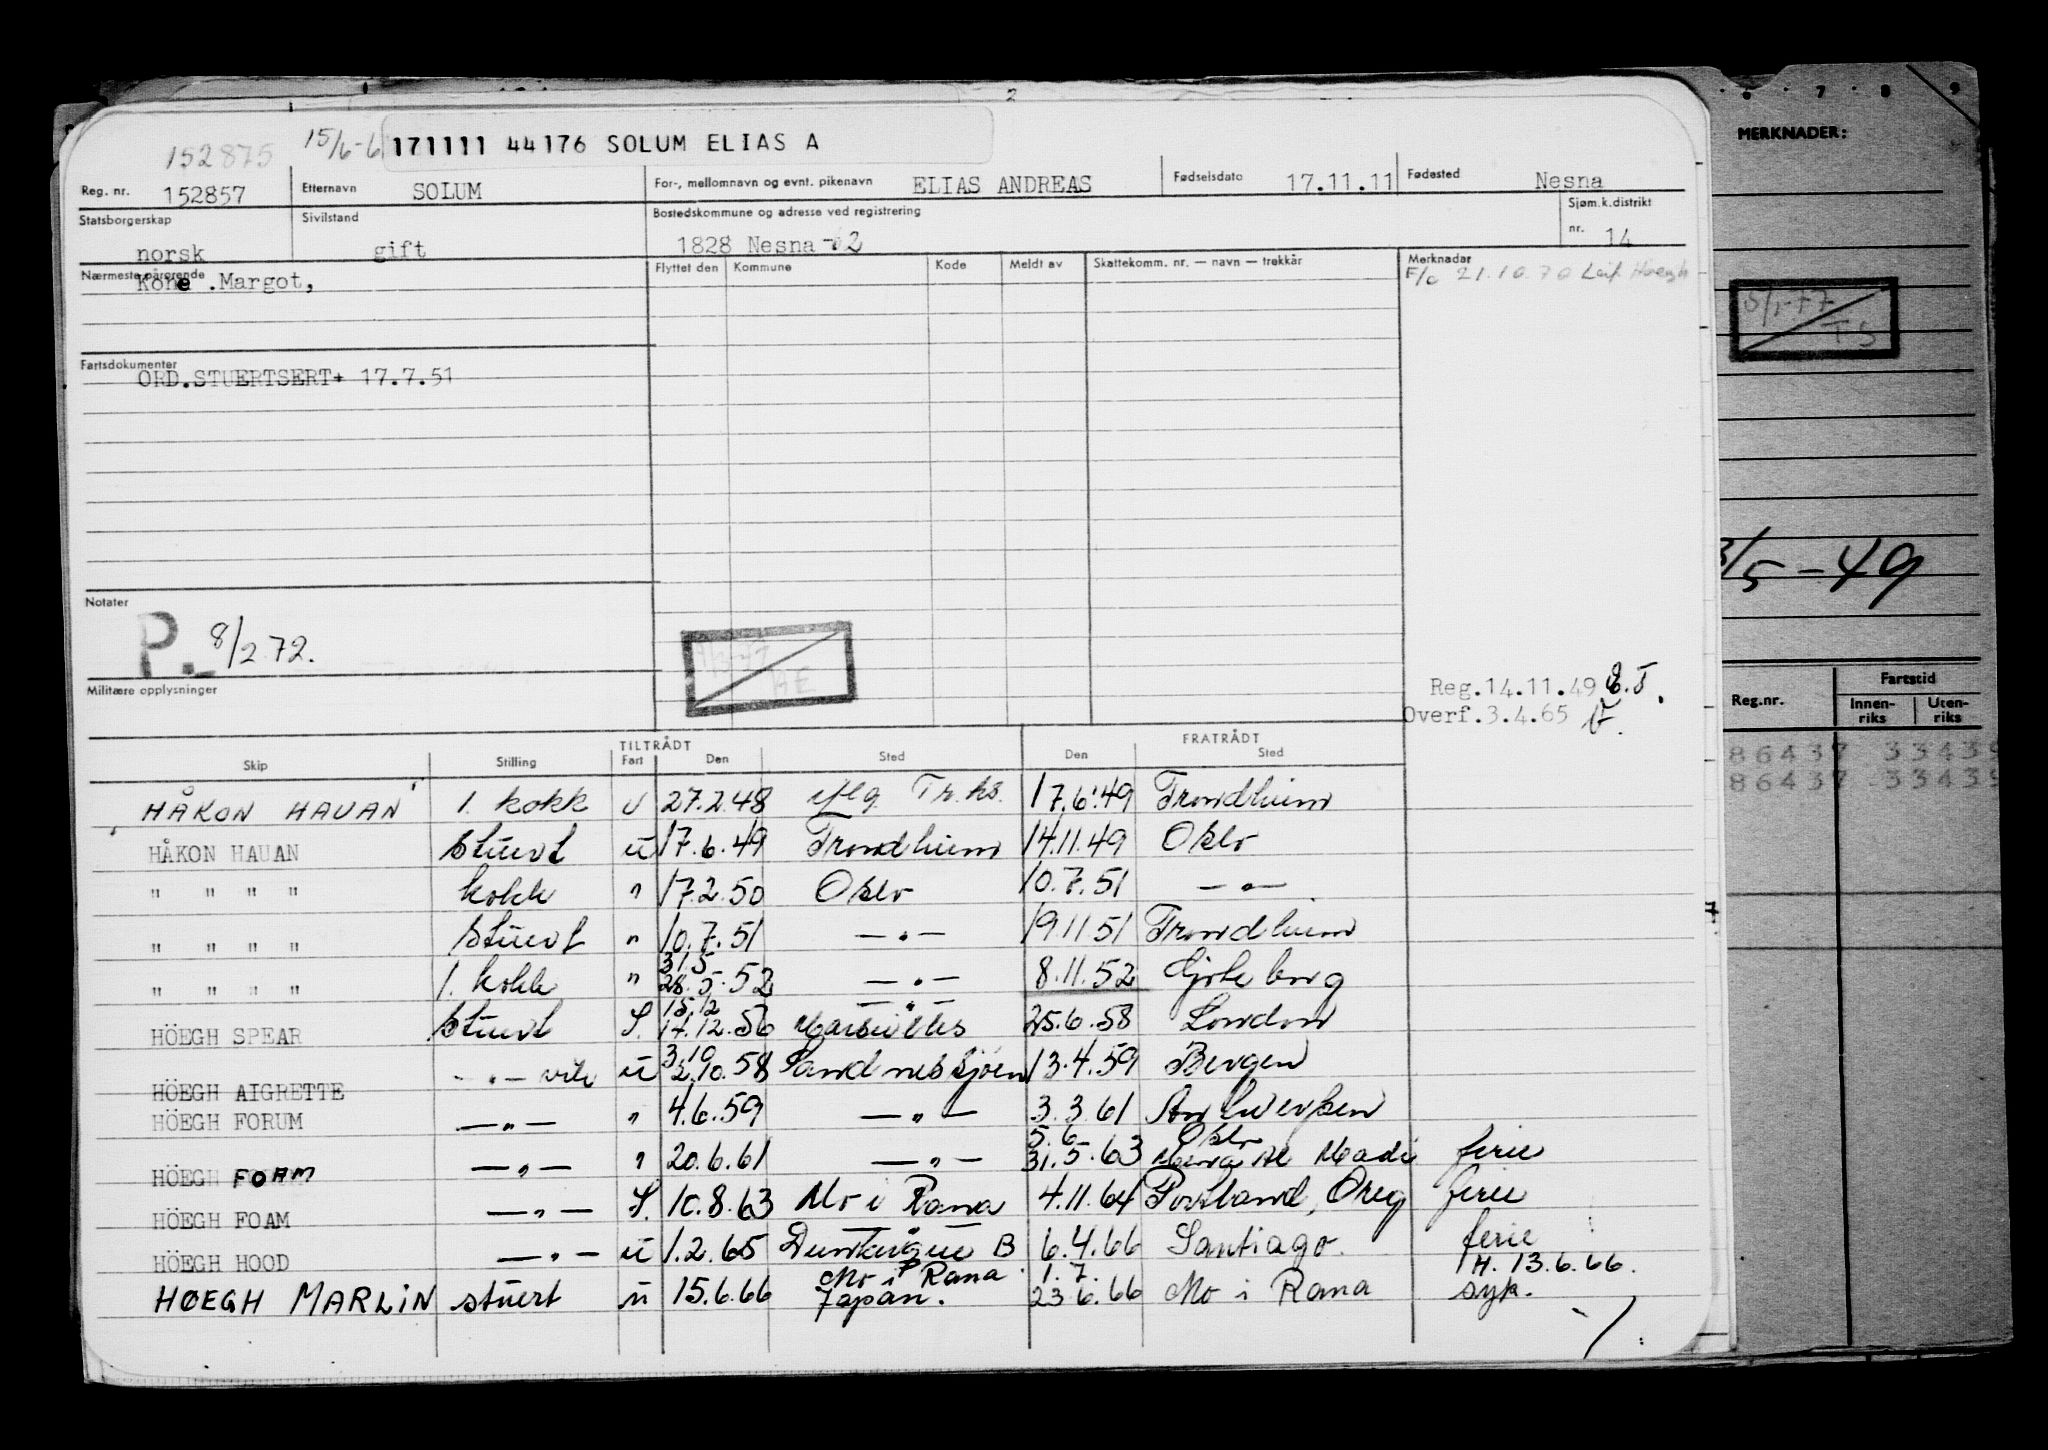 2
6 7 8 9
MERKNADER:
152875 15/6-6 171111 44176 SOLUM ELIAS A
Reg. nr. 152857 Etternavn SOLUM For-, mellomnavn og evnt. pikenavn ELIAS ANDREAS Fødselsdato 17.11.11 Fødested Nesna
Statsborgerskap norsk Sivilstand gift Bostedskommune og adresse ved registrering 1828 Nesna Sjøm.k.distrikt nr. 14
Nærmeste pårørende Kone .Margot,
Flyttet den Kommune Kode Meldt av Skattekomm. nr. — navn — trekkår Merknader
F/o 21.10.70 Leif Hoegh
5/1-77 TS
Fartsdokumenter
ORD.STUERTSERT+ 17.7.51
3/5-49
Notater
P. 8/2 72.
Militære opplysninger
Reg.14.11.49
Overf.3.4.65
Reg.nr. Fartstid
Innen-riks Uten-riks
86437 33439
86437 33439
TILTRÅDT FRATRÅDT
Skip Stilling Fart Den Sted Den Sted
HÅKON HAUAN 1. kokk U 27.2.48 Tr.hs. 17.6.49 Trondheim
HÅKON HAUAN Stuert u 17.6.49 Trondheim 14.11.49 Oslo
" " " " kokk " 17.2.50 Oslo 10.7.51 — " —
" " " " Stuert " 10.7.51 — " — 19.11.51 Trondheim
" " " " 1. kokk " 31.5 28.5.52 — " — 8.11.52 Gøteborg
HÖEGH SPEAR Stuert S. 15.12 14.12.56 — " — Marseilles 25.6.58 London
HÖEGH AIGRETTE — " — vik u 3.10 2.10.58 Sandnessjøen 13.4.59 Bergen
HÖEGH FORUM — " — " 4.6.59 — " — 3.3.61 Antwerpen
HÖEGH FOAM — " — " 20.6.61 — " — 5.6 31.5.63 Oslo Mena Al Madi ferie
HÖEGH FOAM — " — S. 10.8.63 Mo i Rana 4.11.64 Portland, Oreg ferie
HÖEGH HOOD — " — u 1.2.65 Dunkerque B 6.4.66 Santiago. ferie
H. 13.6.66.
HØEGH MARLIN stuert u 15.6.66 Mo i Rana Japan. 1.7. 23.6.66 Mo i Rana syk.